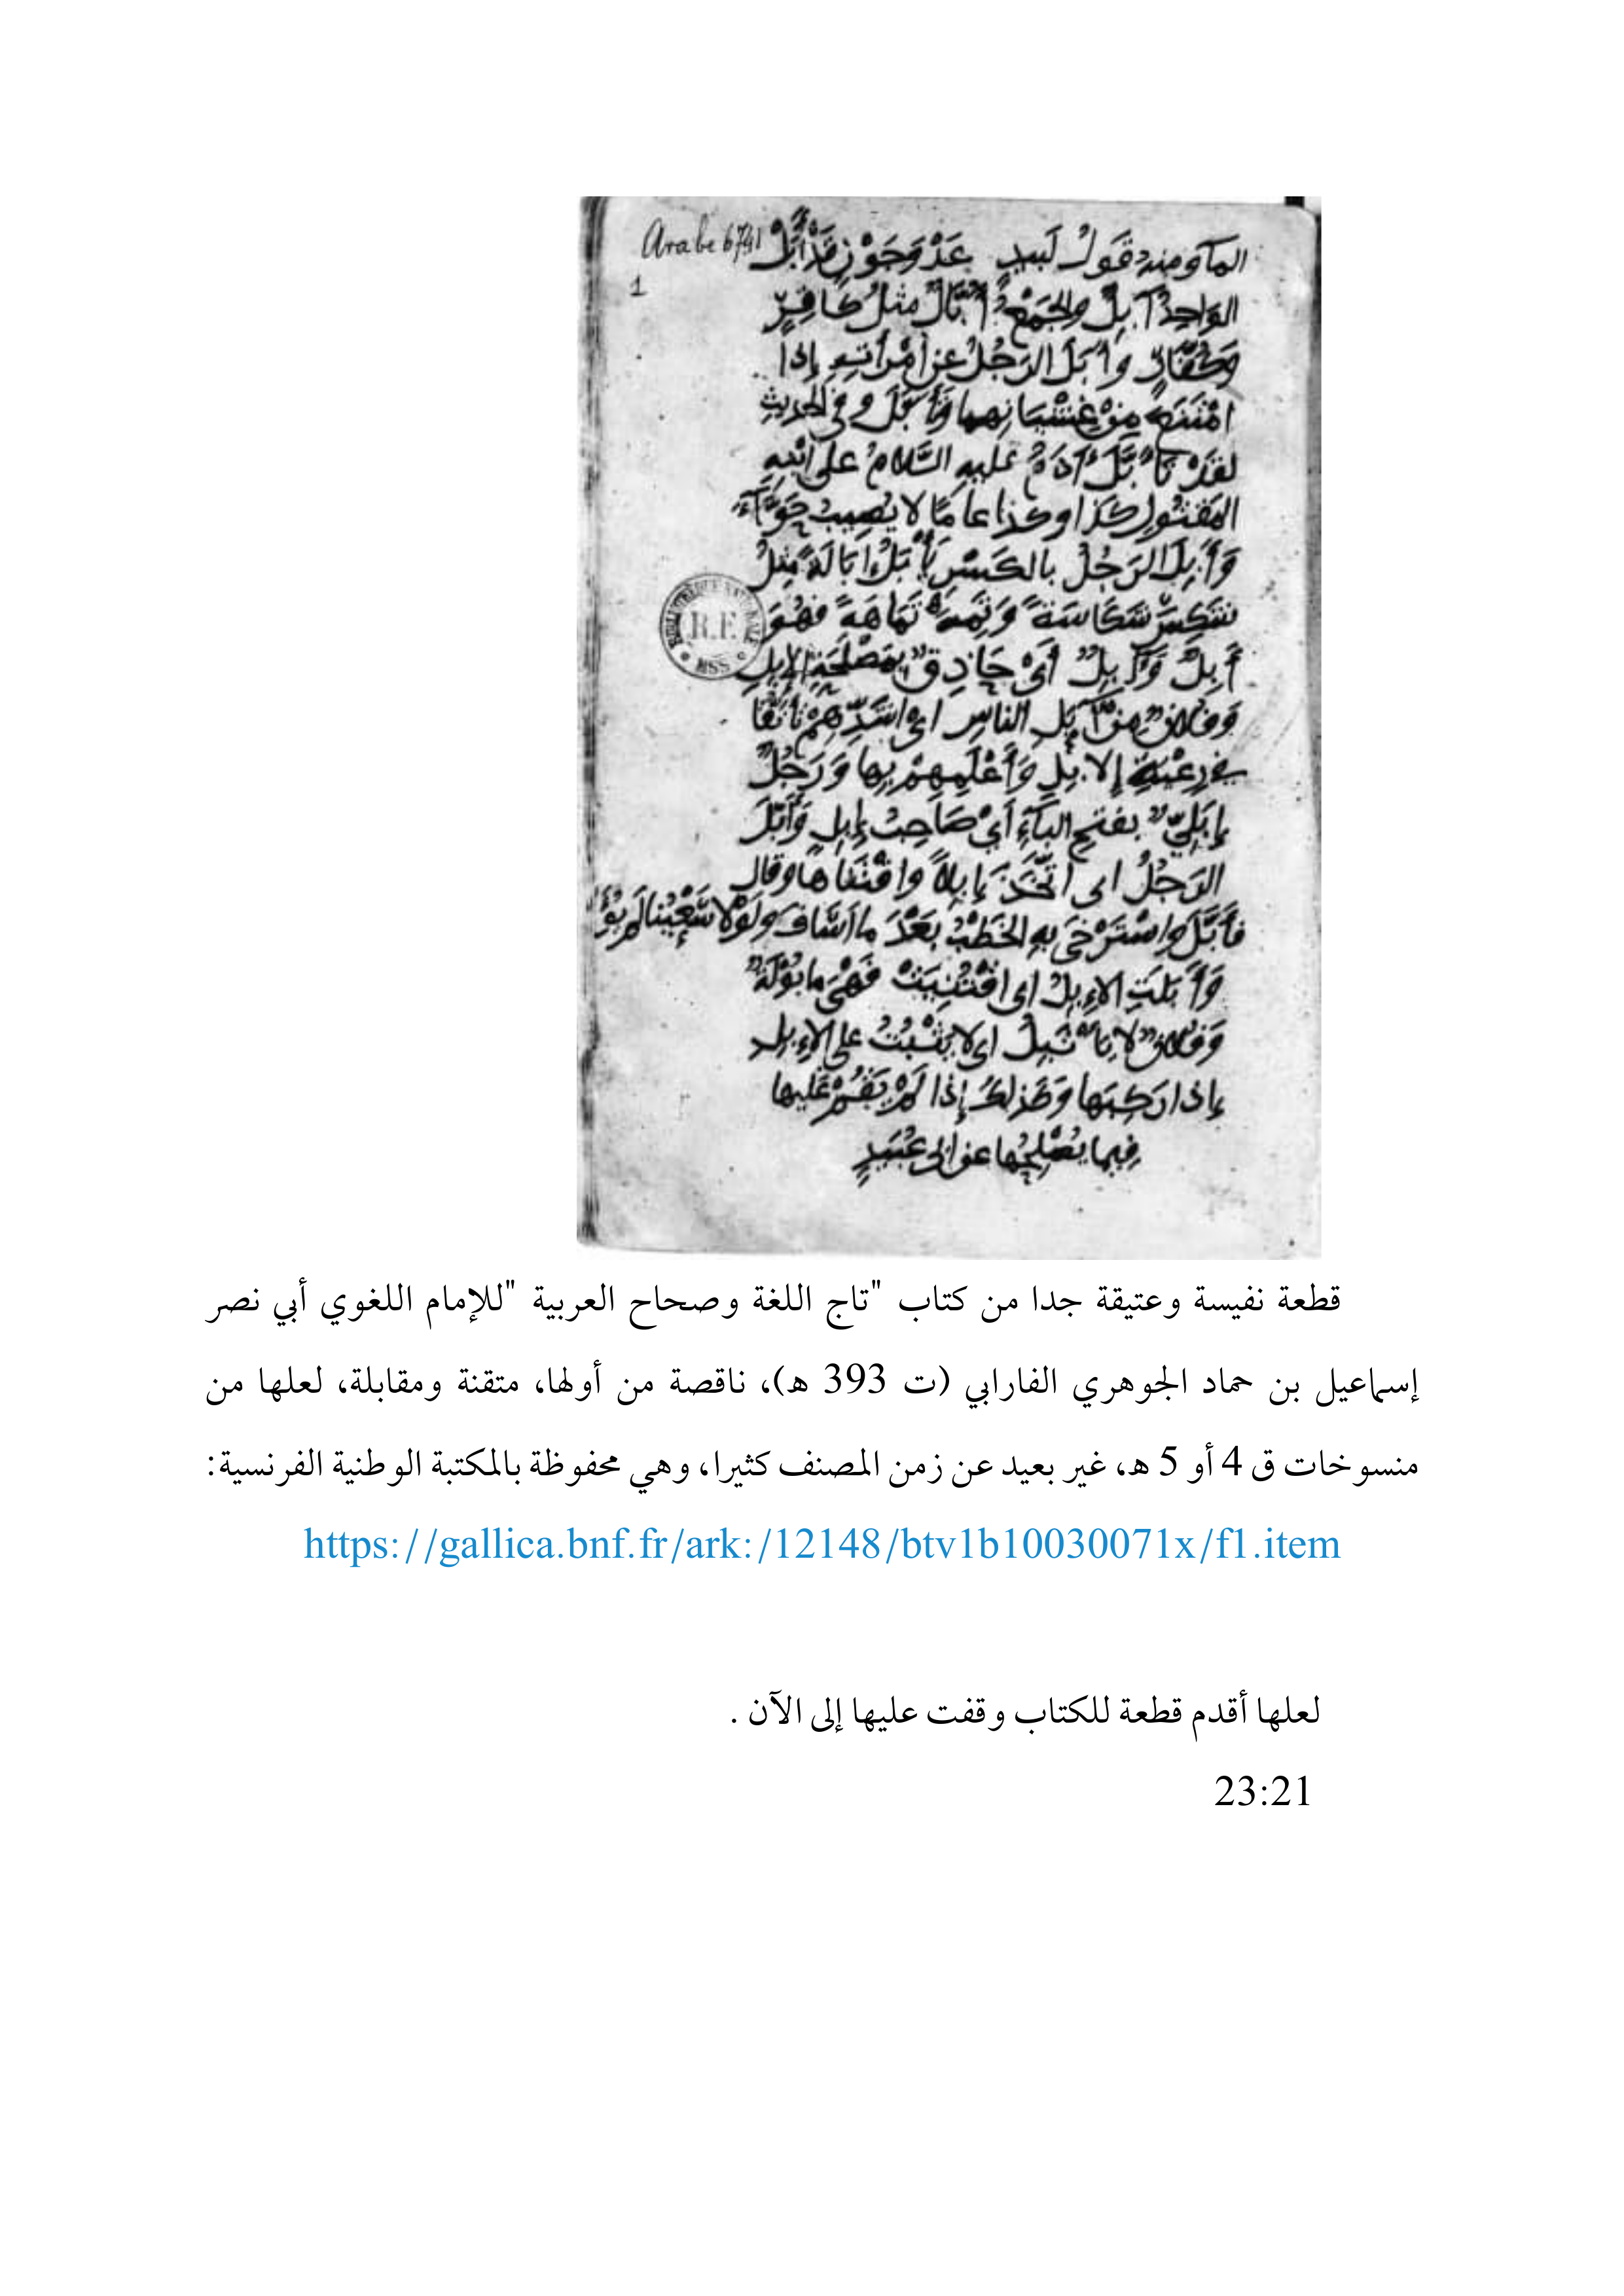 Arabe 6741
1
المآء ومنه قَوْلُ لَبيدٍ
الوَاحِدُ آبِلٌ والجَمْعُ أُبَّالٌ مثلُ كَافِرٍ
وَكُفَّارٍ وأَبَلَ الرَجُلُ عن امْرَأتِهِ إذا
امْتَنَعَ مِنْ غِشْيَانِها وتَأَبَّلَ وفي الحديثِ
لقَدْ تَأَبَّلَ آدَمُ عليه السَّلامُ على ابْنِهِ
المَقْتُولِ كذا وكذا عامًا لا يُصِيبُ حَوَّآءَ
وَأَبِلَ الرَجُلُ بالكَسْرِ يَأْبَلُ أَبَالَةً مِثلُ
شَكِسَ شَكَاسَةً وَتَمِهَ تَمَاهَةً فهُوَ
أَبِلٌ وَآبِلٌ أَيْ حَاذِقٌ بمَصْلَحَةِ الإبِلِ
وَفُلانٌ مِنْ آبَلِ الناسِ اى اشَدِّهِمْ تَأَنُّقًا
في رِعْيَةِ الإبِلِ وَأَعْلَمِهِمْ بِها وَرَجُلٌ
إبَلِيٌّ بفتح البآءِ أَيْ صَاحِبُ إبِلٍ وَأَبَّلَ
الرَجُلُ اى اتَّخَذَ إبِلاً واقْتَنَاها وقال
فأَبَّلَ واسْتَرْخَى بهِ الخَطْبُ بَعْدَ ما اسَافَ وَلَوْلا سَعْيُنا لَمْ يُؤَبِّلِ
وَأُبِلَتِ الإبِلُ اى اقْتُنِيَتْ فَهْىَ مابُولَةٌ
وَفُلانٌ لا يَأْتَبِلُ اى لا يَثْبُتُ على الإبِلِ
إذا رَكِبَها وَكَذلكَ إذا لَمْ يَقُمْ عَليها
فِيما يُصْلِحُها عن ابى عُبَيدٍ
BIBLIOTHEQUE NATIONALE
R.F.
MSS
قطعة نفيسة وعتيقة جدا من كتاب "تاج اللغة وصحاح العربية "للإمام اللغوي أبي نصر
إسماعيل بن حماد الجوهري الفارابي (ت 393 هـ)، ناقصة من أولها، متقنة ومقابلة، لعلها من
منسوخات ق 4 أو 5 هـ، غير بعيد عن زمن المصنف كثيرا، وهي محفوظة بالمكتبة الوطنية الفرنسية:
https://gallica.bnf.fr/ark:/12148/btv1b10030071x/f1.item
لعلها أقدم قطعة للكتاب وقفت عليها إلى الآن .
23:21